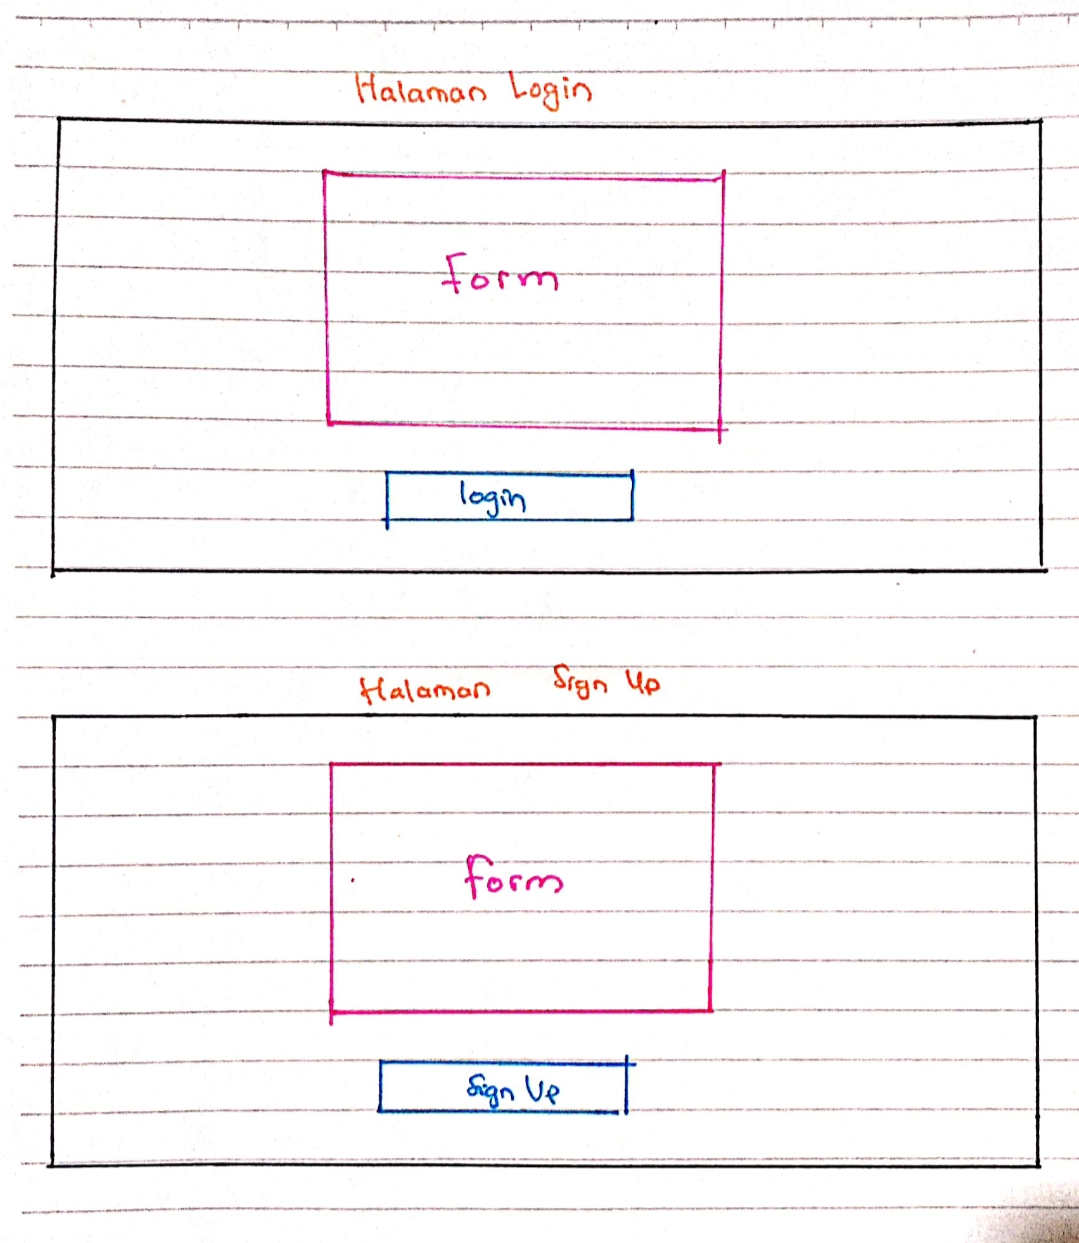 Halaman Login
Form
login
Halaman Sign Up
Form
Sign Up